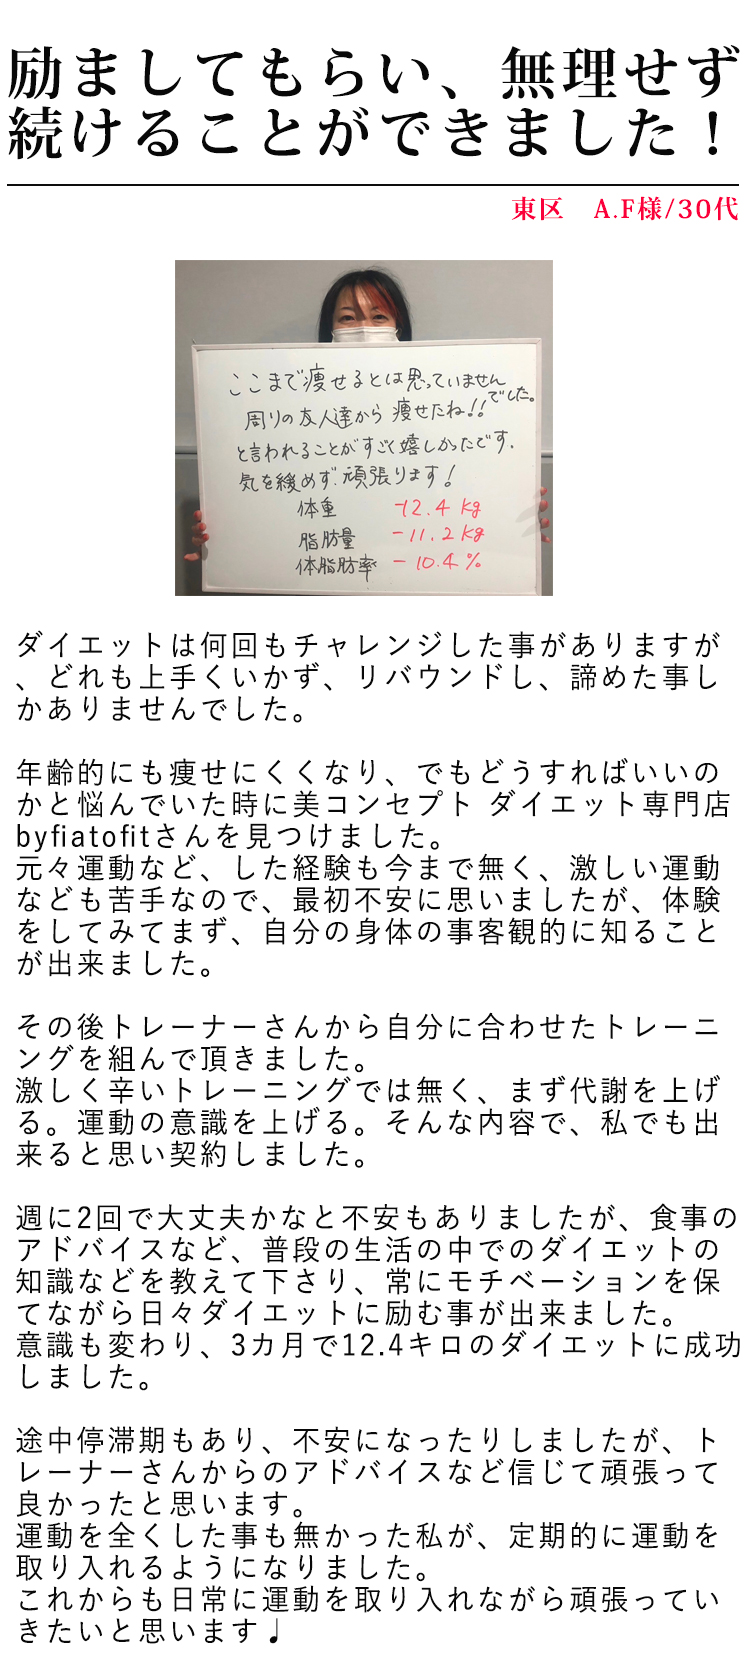 励ましてもらい、無理せず
続けることができました！
東区　A.F様/30代
ここまで痩せるとは思っていません
でした。
周りの友人達から 痩せたね!!
と言われることがすごく嬉しかったです.
気を緩めず.頑張ります!
体重 -12.4 kg
脂肪量 -11.2 kg
体脂肪率 - 10.4 %
ダイエットは何回もチャレンジした事がありますが
、どれも上手くいかず、リバウンドし、諦めた事し
かありませんでした。
年齢的にも痩せにくくなり、でもどうすればいいの
かと悩んでいた時に美コンセプト ダイエット専門店
byfiatofitさんを見つけました。
元々運動など、した経験も今まで無く、激しい運動
なども苦手なので、最初不安に思いましたが、体験
をしてみてまず、自分の身体の事客観的に知ること
が出来ました。
その後トレーナーさんから自分に合わせたトレーニ
ングを組んで頂きました。
激しく辛いトレーニングでは無く、まず代謝を上げ
る。運動の意識を上げる。そんな内容で、私でも出
来ると思い契約しました。
週に2回で大丈夫かなと不安もありましたが、食事の
アドバイスなど、普段の生活の中でのダイエットの
知識などを教えて下さり、常にモチベーションを保
てながら日々ダイエットに励む事が出来ました。
意識も変わり、3カ月で12.4キロのダイエットに成功
しました。
途中停滞期もあり、不安になったりしましたが、ト
レーナーさんからのアドバイスなど信じて頑張って
良かったと思います。
運動を全くした事も無かった私が、定期的に運動を
取り入れるようになりました。
これからも日常に運動を取り入れながら頑張ってい
きたいと思います♩